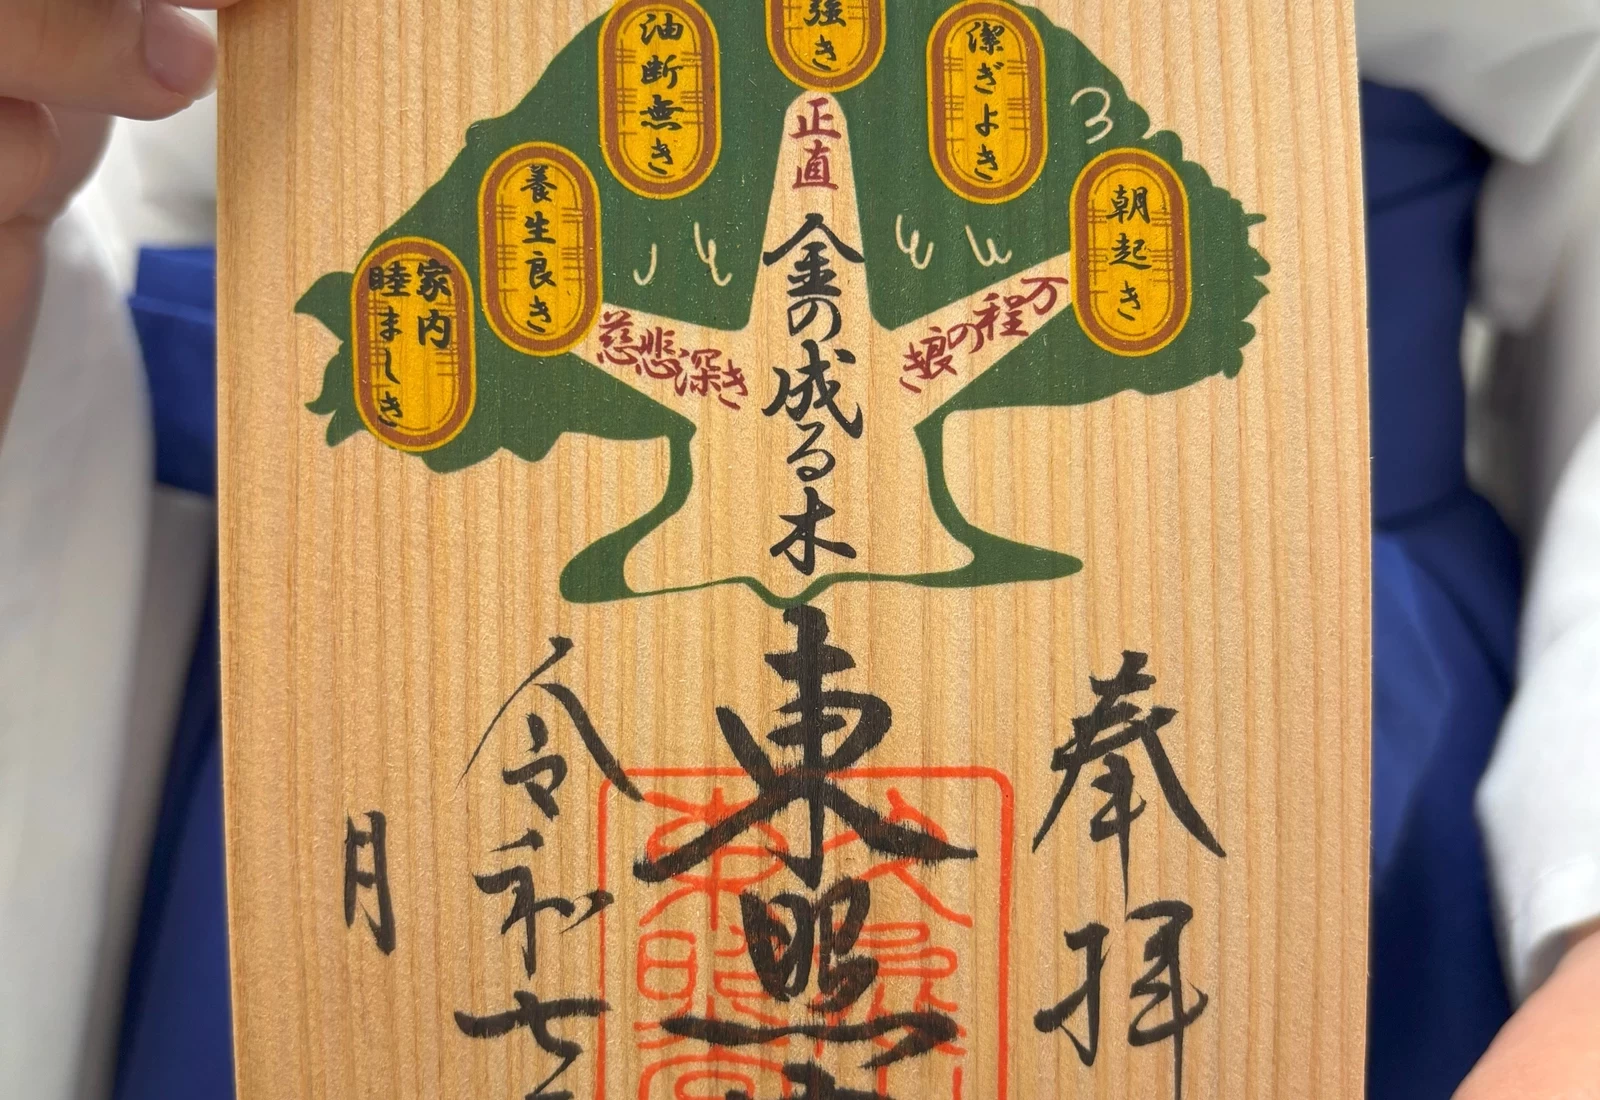 朝起き
潔ぎよき
強き
油断無き
養生良き
家内
睦ましき
万程の
正直
慈悲深き
金の成る木
奉拝
東照
令和七
月